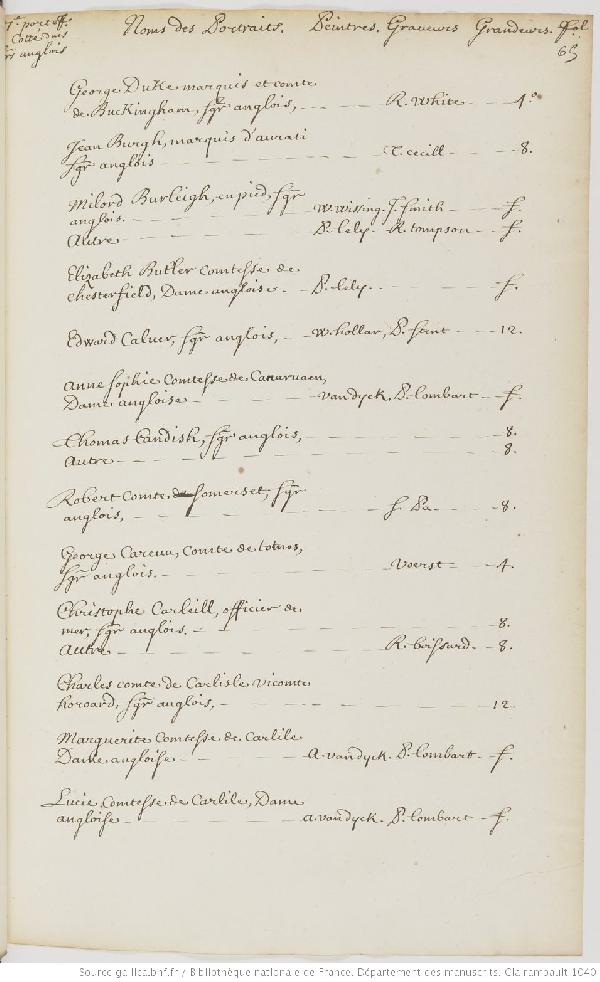 7e. porteff. Noms des Portraits. Peintres. Graveurs Grandeurs. fol.
Cotté des 65
sgrs anglois
George Duke marquis et comte
de Buckingham, sgr anglois, R. White 4°
Jean Burgh, marquis d'aurati
sgr anglois T. cecill 8.
Milord Burleigh, en pied, sgr
anglois. W. Wissing. J. Smith f.
Autre P. Lely. R. tompson f.
Elizabeth Butler comtesse de
chesterfield, Dame angloise. P. Lely. f.
Edward Caluer, sgr anglois, W. hollar, P. Stent 12.
Anne Sophie Comtesse de Canaruaen,
Dame angloise vandyck. P. Lombart f.
Thomas Candish, sgr anglois, 8.
Autre 8.
Robert Comte de Somerset, sgr
anglois, S. Pa. 8.
George Careuu, Comte de totnes,
sgr anglois. Voerst 4.
Christophe Carleill, officier de
mer, sgr anglois. 8.
Autre R. boissard. 8.
Charles comte de Carlisle vicomte
horoard, sgr anglois, 12
Marguerite Comtesse de Carlile
Dame angloise A. vandyck. P. Lombart f.
Lucie Comtesse de Carlile, Dame
angloise A. vandyck. P. Lombart f.
Source gallica.bnf.fr / Bibliothèque nationale de France. Département des manuscrits. Clairambault 1040